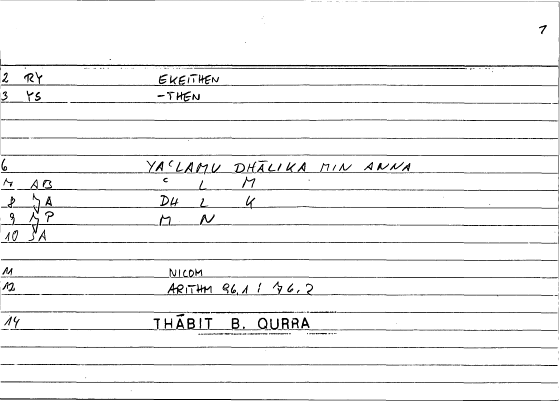 1
2 RY EKEITHEN
3 YS -THEN
6 YAʿLAMU DHĀLIKA MIN ANNA
7 AB ʿ L M
8 JA DH L K
9 JP M N
10 JA
11 NICOM
12 ARITHM 96,1 / 76,2
14 THĀBIT B. QURRA